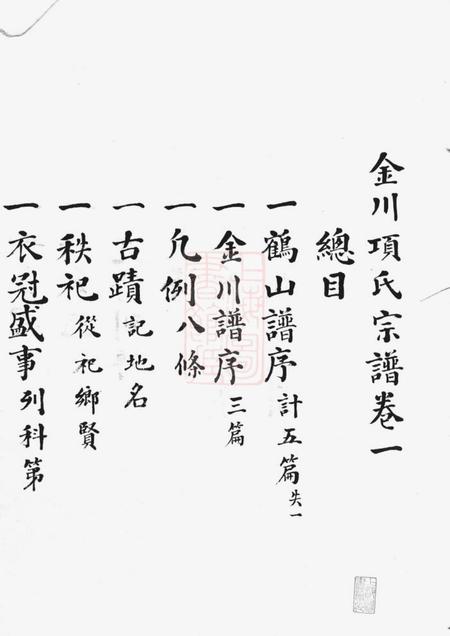 金川項氏宗譜卷一
總目
一鶴山譜序計五篇失一
一金川譜序三篇
一凡例八條
一古蹟記地名
一秩祀從祀鄉賢
一衣冠盛事列科第